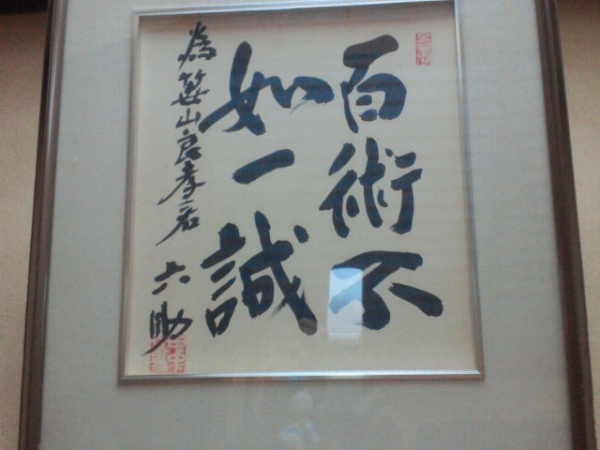 百術不
如一誠
為笹山良孝君
六助